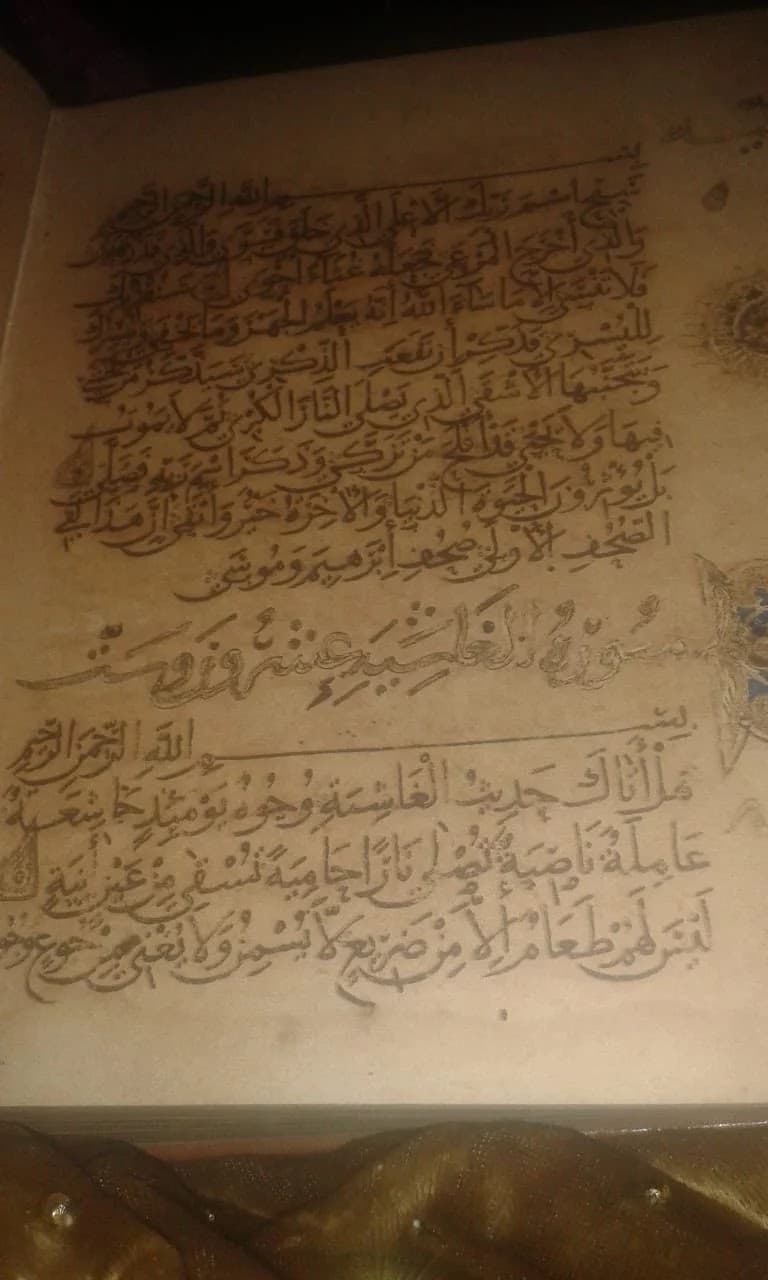 بسم الله الرحمن الرحيم
سَبِّحِ اسْمَ رَبِّكَ الْأَعْلَى الَّذِي خَلَقَ فَسَوَّى وَالَّذِي قَدَّرَ فَهَدَى
وَالَّذِي أَخْرَجَ الْمَرْعَى فَجَعَلَهُ غُثَاءً أَحْوَى سَنُقْرِئُكَ
فَلَا تَنْسَى إِلَّا مَا شَاءَ اللَّهُ إِنَّهُ يَعْلَمُ الْجَهْرَ وَمَا يَخْفَى وَنُيَسِّرُكَ
لِلْيُسْرَى فَذَكِّرْ إِنْ نَفَعَتِ الذِّكْرَى سَيَذَّكَّرُ مَنْ يَخْشَى
وَيَتَجَنَّبُهَا الْأَشْقَى الَّذِي يَصْلَى النَّارَ الْكُبْرَى ثُمَّ لَا يَمُوتُ
فِيهَا وَلَا يَحْيَى قَدْ أَفْلَحَ مَنْ تَزَكَّى وَذَكَرَ اسْمَ رَبِّهِ فَصَلَّى
بَلْ يُؤْثِرُونَ الْحَيَوةَ الدُّنْيَا وَالْآخِرَةُ خَيْرٌ وَأَبْقَى إِنَّ هَذَا لَفِي
الصُّحُفِ الْأُولَى صُحُفِ إِبْرَهِيمَ وَمُوسَى
سُورَةُ الْغَاشِيَةِ عِشْرُونَ وَسِتّ
بِسْمِ اللَّهِ الرَّحْمَنِ الرَّحِيمِ
هَلْ أَتَاكَ حَدِيثُ الْغَاشِيَةِ وُجُوهٌ يَوْمَئِذٍ خَاشِعَةٌ
عَامِلَةٌ نَاصِبَةٌ تَصْلَى نَارًا حَامِيَةً تُسْقَى مِنْ عَيْنٍ آنِيَةٍ
لَيْسَ لَهُمْ طَعَامٌ إِلَّا مِنْ ضَرِيعٍ لَا يُسْمِنُ وَلَا يُغْنِي مِنْ جُوعٍ وُجُوهٌ